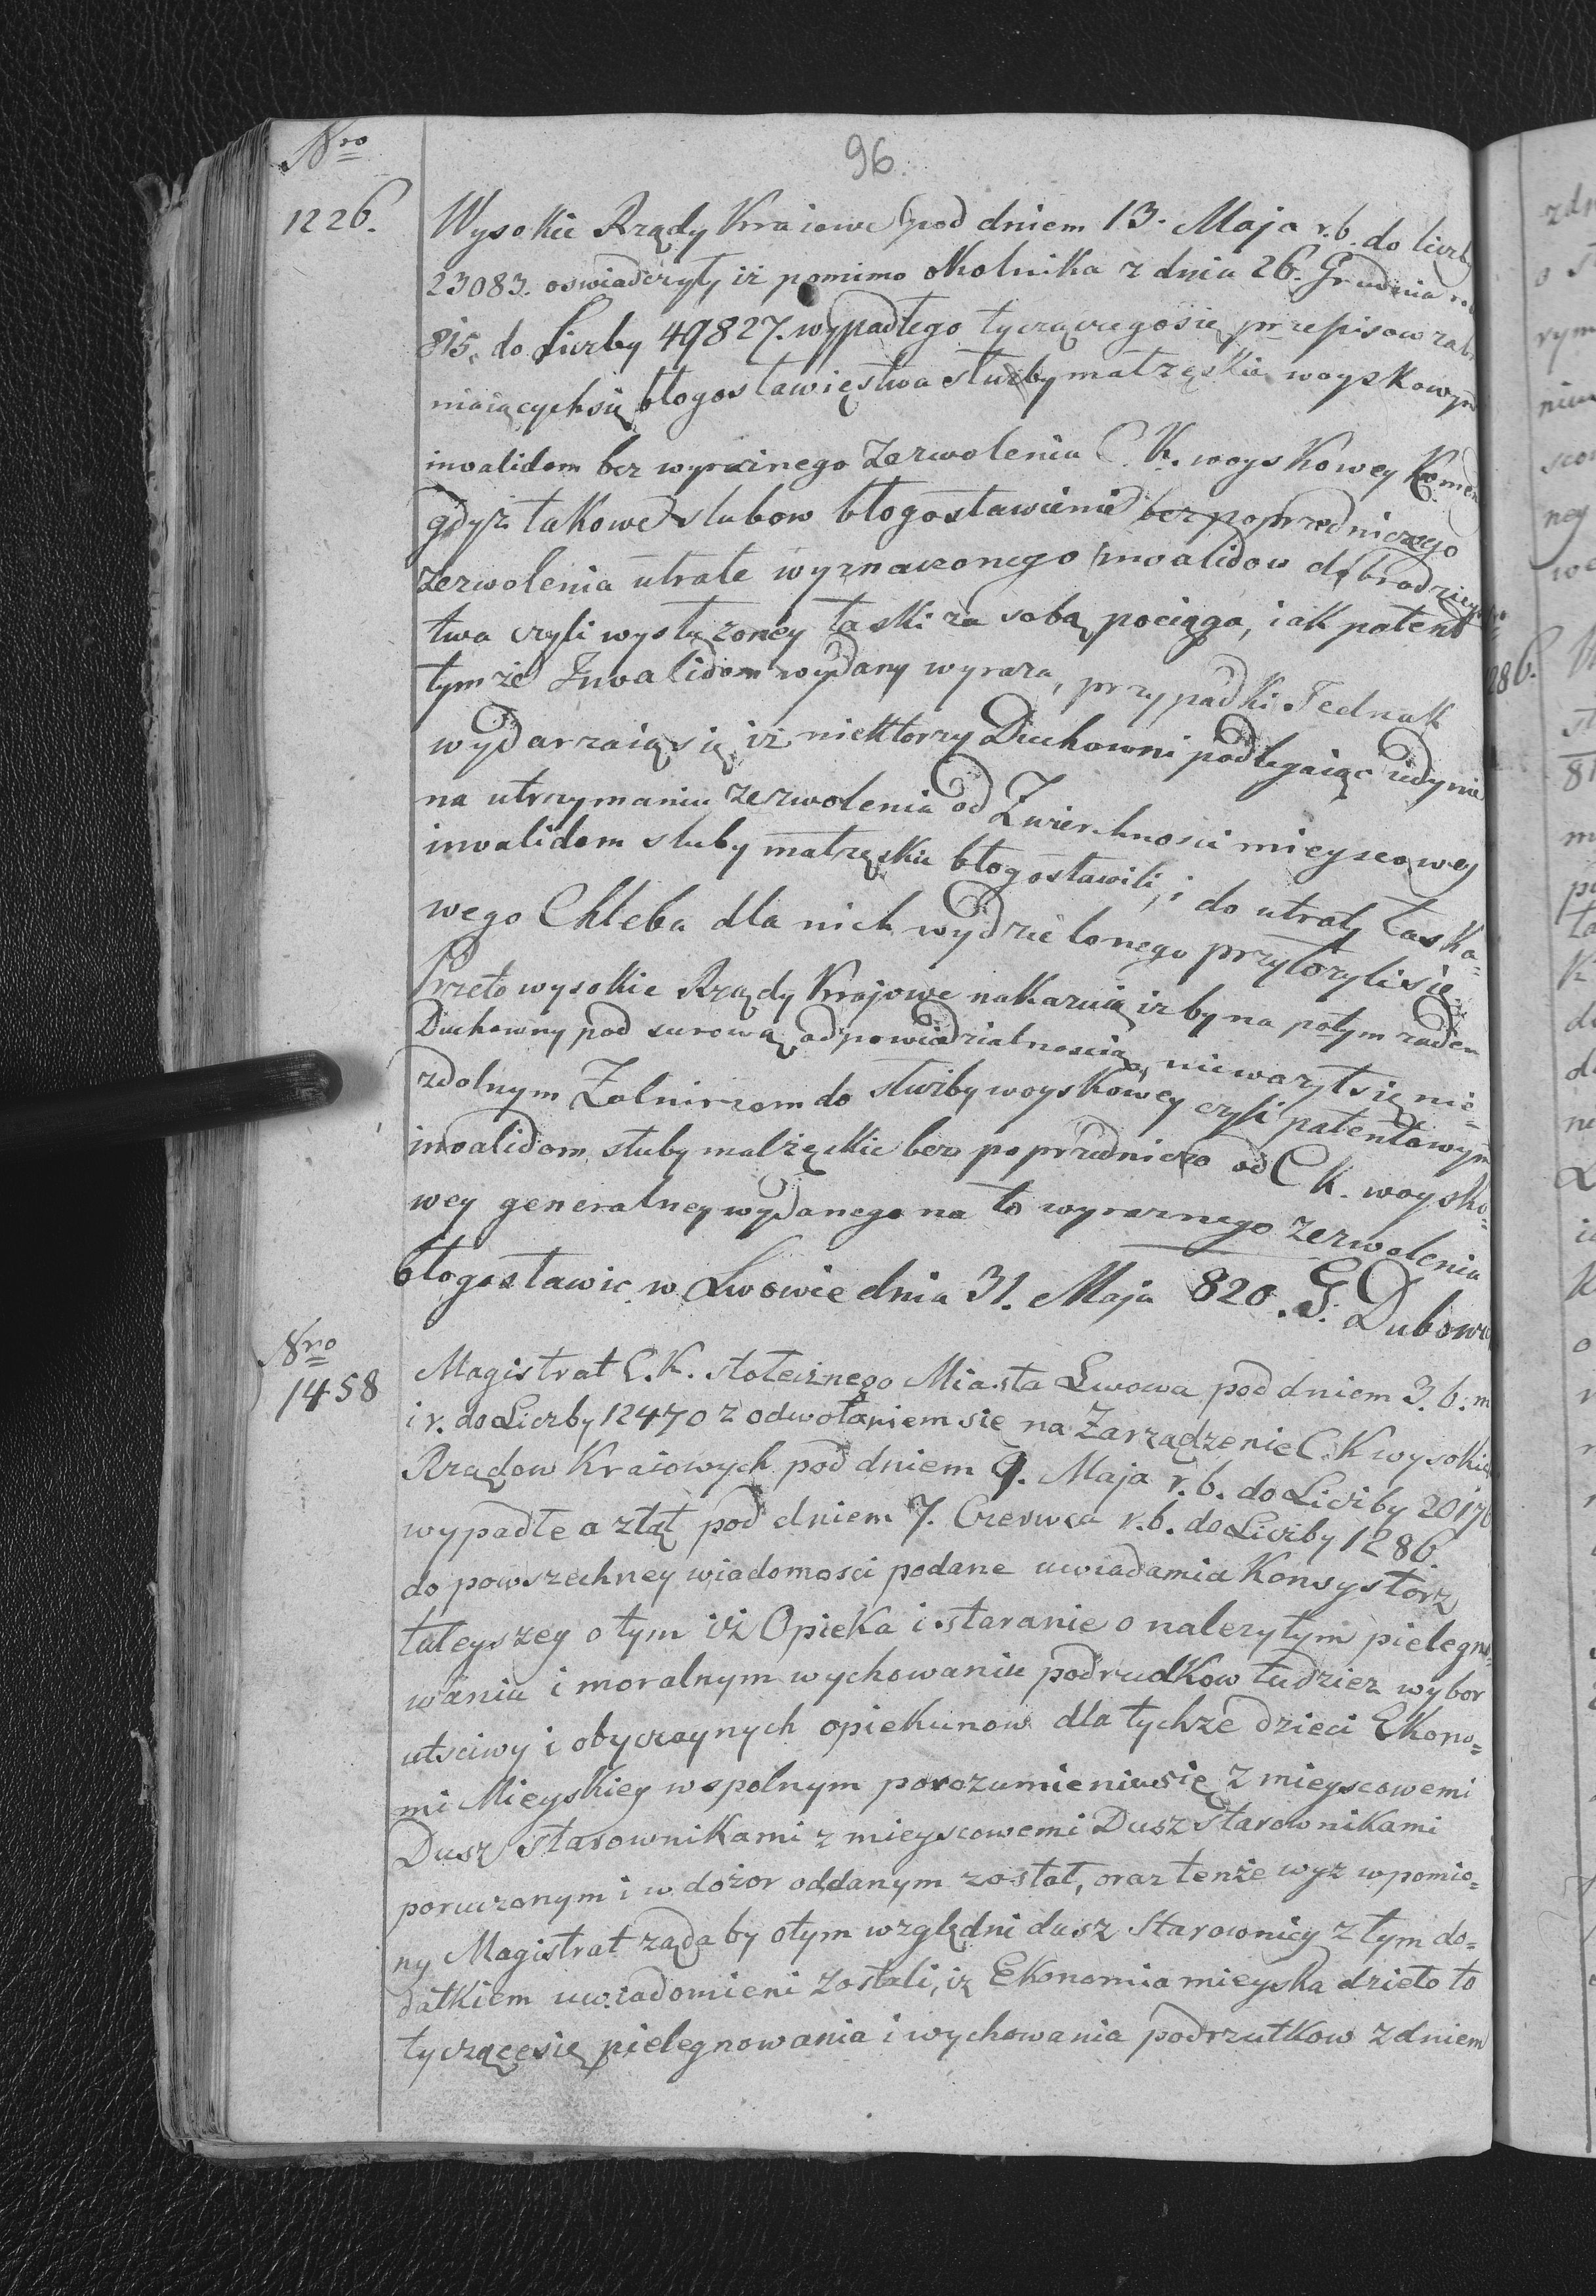 Nro
96.
1226.
Wysokie Rządy Kraiowe pod dniem 13. Maja r. b. do liczby
23083. oswiadczyły iż pomimo okolnika z dnia 26. Grudnia
815. do Liczby 49827. wypadłego tyczącegosię przepisow zabra
niaiących się błogosławięstwa słuzby małzęskie woyskowym
invalidom bez wyrainego Zezwolenia C. K. woyskowey Komend
gdyż takowe slubow błogosławienie bez poprzedniczego
Zezwolenia utrate wyznaczonego invalidow dobrodzieys
twa czyli wysłużoney łaski za sobą pociąga, iak patent
tymże Invalidom wydany wyraza, przypadki Jednak
wydarzaiąsię, iż niektorzy Duchowni podlegaiąc iedynie
na utrzymaniu zezwolenia od Zwierzchnosci mieyscowey
invalidom sluby małzęskie błogosławili, i do utraty łaska=
wego Chleba dla nich wydzielonego przyłozylisię.
Przeto wysokie Rządy Krajowe nakazuią iżby na potym żaden
Duchowny pod surową odpowiedzialnoscią, nieważył się nie=
zdolnym Zolnirzom do służby woyskowey czyli patentowym
invalidom sluby małżęckie bez poprzedniczo od C k. woysko=
wey generalney wydanego na to wyraznego zezwolenia
błogosławic. w Lwowie dnia 31. Maja 820. G. Dubowi
Nro
1458
Magistrat C. K. stołecznego Miasta Lwowa pod dniem 3. b. m
i r. do Liczby 12470 z odwołaniem się na Zarządzenie C. K wysokich
Rządow Kraiowych pod dniem 9. Maja r. b. do Liczby 20176
wypadłe a ztąt pod dniem 7. Czerwca r. b. do Liczby 1286.
do powszechney wiadomosci podane uwiadamia Konsystorz
tuteyszey o tym iż Opieka i staranie o nalezytym pielegno=
waniu i moralnym wychowaniu podrudkow tudziez wybor
utsciwy i obyczaynych opiekunow dla tychze dzieci Ekono=
mi Mieyskiey wspolnym porozumieniusię z mieyscowemi
Dusz starownikami z mieyscowemi Dusz starownikami
poruczonym i w dożor oddanym został, oraz tenże wyz wpomio=
ny Magistrat ząda by otym względni dusz Starownicy z tym do=
datkiem uwiadomieni zostali, iż Ekonomia mieyska dzieło to
tyczącesię pielegnowania i wychowania podrzutkow z dniem